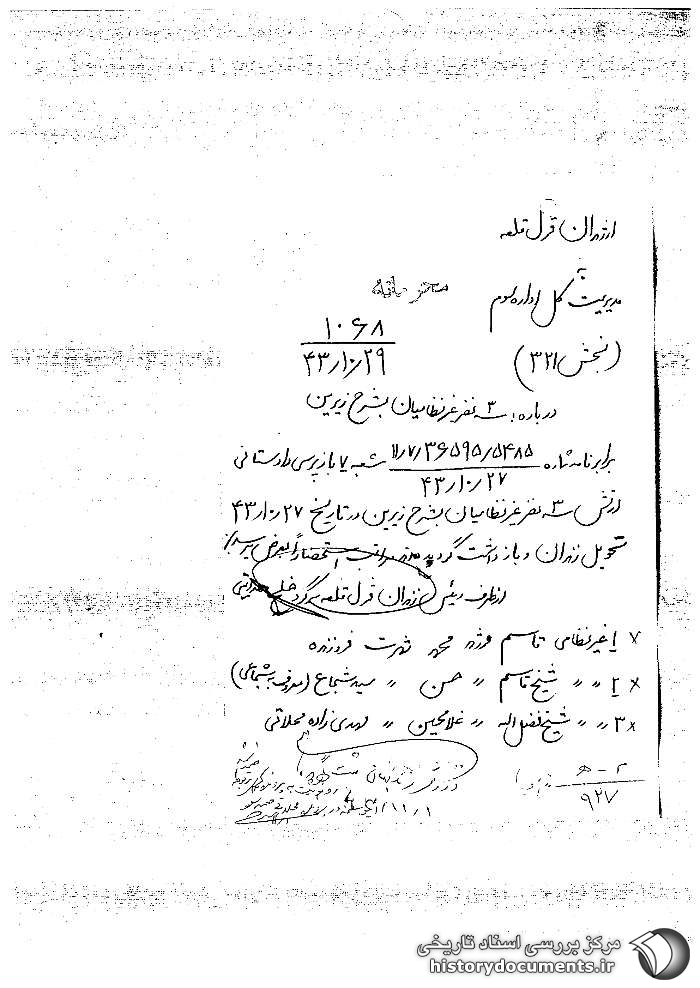 از زندان قزل قلعه
به
مدیریت کل اداره سوم
محرمانه
(بخش ۳۲۱)
۱۰۶۸
۴۳/۱۰/۲۹
درباره: ۳ نفر غیرنظامیان بشرح زیرین
برابر نامه شماره ۱۱/۷/۳۶۵۹۵/۵۴۸۵ شعبه ۷ بازپرسی دادستانی
۴۳/۱۰/۲۷
ارتش ۳ نفر غیرنظامیان بشرح زیرین در تاریخ ۴۳/۱۰/۲۷
تحویل زندان و بازداشت گردیدند مراتب استحضاراً بعرض میرسد/
از طرف رئیس زندان قزل قلعه سرگرد
۱ غیرنظامی قاسم فرزند محمد شهرت فروزنده
۲ " " شیخ قاسم " حسن " سید شجاع (معروف به شجاعی)
۳ " " شیخ فضل اله " غلامحسین " مهدی زاده محلاتی
۹۲۷
۱۱/۱
مرکز بررسی اسناد تاریخی
historydocuments.ir